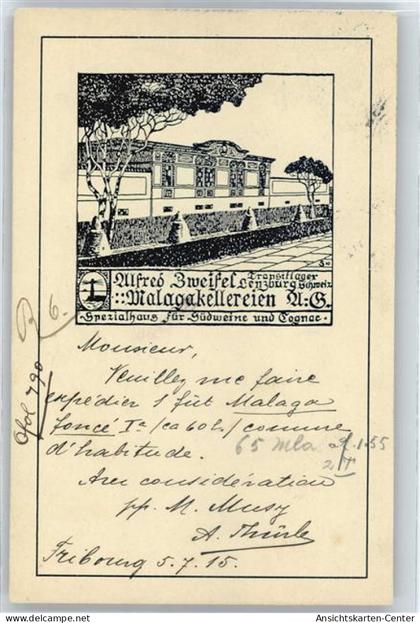 Alfred Zweifel Transitlager
Lenzburg Schweiz
Malagakellereien A:G.
Spezialhaus für Südweine und Cognac
6.
Monsieur,
Veuillez me faire
expédier 1 fût Malaga
foncé Iª (ca 60 l.) comme
d'habitude.
65 Mla
1.55
Avec considération
pp. M. Musy
Fribourg 5.7.15.
790
Ansichtskarten-Center